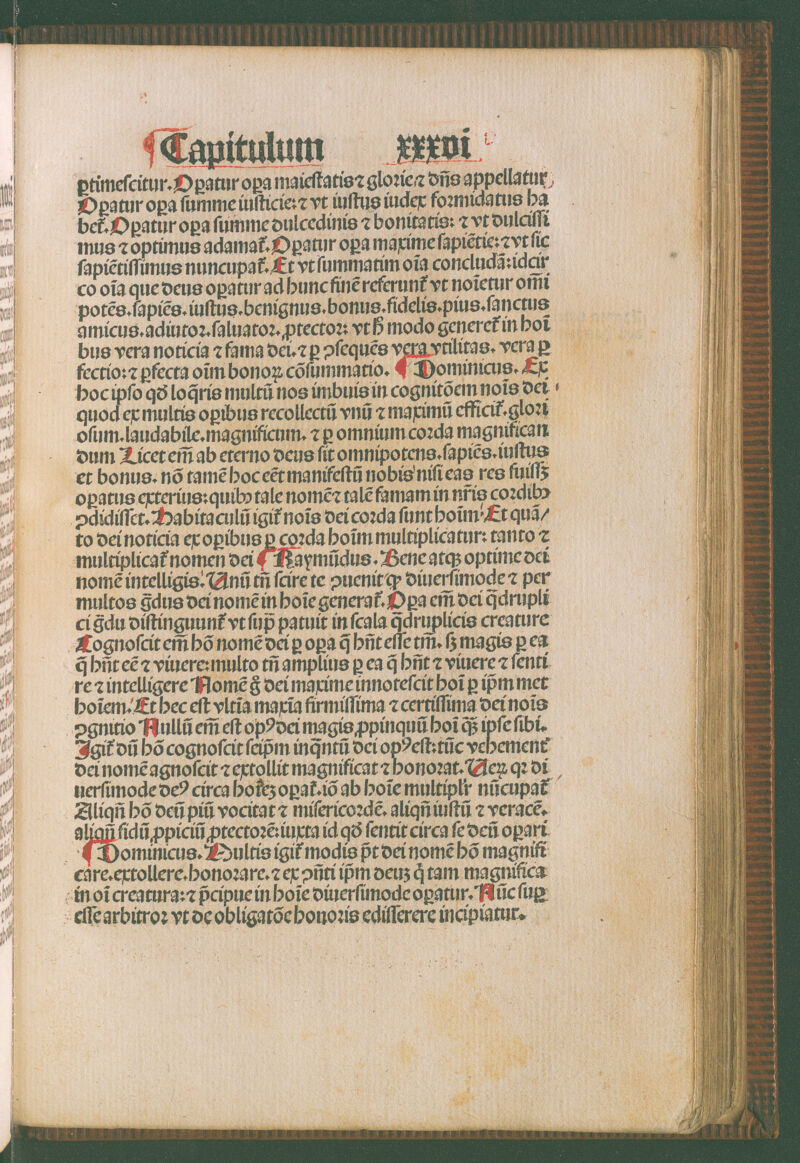 ¶ Capitulum xxxvi
ꝑtimeſcitur. Oꝑatur oꝑa maieſtatis ⁊ gloꝛie ⁊ dn̄s appellatur
Oꝑatur oꝑa ſumme iuſticie: ⁊ vt iuſtus iudex foꝛmidatus ha
bet᷑. Oꝑatur oꝑa ſumme dulcedinis ⁊ bonitatis: ⁊ vt dulciſſi
mus ⁊ optimus adamat᷑. Oꝑatur oꝑa maxime ſapiētie: ⁊ vt ſic
ſapiētiſſimus nuncupat᷑. Et vt ſummatim oīa concludā: idcir
co oīa que deus oꝑatur ad hunc finē referunt᷑ vt noīetur om̄i
potēs. ſapiēs. iuſtus. benignus. bonus. fidelis. pius. ſanctus
amicus. adiutoꝛ. ſaluatoꝛ. ꝓtectoꝛ: vt h̄ modo generet᷑ in hoī
bus vera noticia ⁊ fama dei. ⁊ ꝑ ↄſequēs vera vtilitas. vera ꝑ
fectio: ⁊ ꝑfecta oīm bonoꝝ cōſummatio. ¶ Dominicus. Ex
hoc ipſo qd̄ loq̄ris multū nos imbuis in cognitōem noīs dei
quod ex multis oꝑibus recollectū vnū ⁊ maximū efficit᷑. gloꝛi
oſum. laudabile. magnificum. ⁊ ꝑ omnium coꝛda magnifican
dum Licet em̄ ab eterno deus ſit omnipotens. ſapiēs. iuſtus
et bonus. nō tamē hoc eēt manifeſtū nobis niſi eas res fuiſſꝫ
oꝑatus exterius: quibꝰ tale nomē ⁊ talē famam in nr̄is coꝛdibꝰ
ↄdidiſſet. Habitaculū igit᷑ noīs dei coꝛda ſunt hoīm. Et quā/
to dei noticia ex oꝑibus ꝑ coꝛda hoīm multiplicatur: tanto ⁊
multiplicat᷑ nomen dei ¶ Raymūdus. Bene atqꝫ optime dei
nomē intelligis. Unū tn̄ ſcire te ↄuenit ꝙ diuerſimode ⁊ per
multos ḡdus dei nomē in hoīe generat᷑. Oꝑa em̄ dei q̄drupli
ci ḡdu diſtinguunt᷑ vt ſup̄ patuit in ſcala q̄druplicis creature
Cognoſcit em̄ hō nomē dei ꝑ oꝑa q̄ hn̄t eſſe tm̄. ſꝫ magis ꝑ ea
q̄ hn̄t eē ⁊ viuere: multo tn̄ amplius ꝑ ea q̄ hn̄t ⁊ viuere ⁊ ſenti
re ⁊ intelligere Nomē g̊ dei maxime innoteſcit hoī ꝑ ip̄m met
hoīem. Et hec eſt vltīa maxīa firmiſſima ⁊ certiſſima dei noīs
ↄgnitio Nullū em̄ eſt opꝰ dei magis ꝓpinquū hoī qꝫ̄ ipſe ſibi.
Igit᷑ dū hō cognoſcit ſeip̄m inq̄ntū dei opꝰ eſt: tūc vehement᷑
dei nomē agnoſcit ⁊ extollit magnificat ⁊ honoꝛat. Ueꝝ qꝛ di
uerſimode deꝰ circa hoīeꝫ oꝑat᷑. iō ab hoīe multiplr̄ nūcupat᷑
Aliqn̄ hō deū piū vocitat ⁊ miſericoꝛdē. aliqn̄ iuſtū ⁊ veracē.
aliqn̄ fidū ꝓpiciū ꝓtectoꝛē: iuxta id qd̄ ſentit circa ſe deū oꝑari
¶ Dominicus. Multis igit᷑ modis p̄t dei nomē hō magnifi
care. extollere. honoꝛare. ⁊ ex ↄn̄ti ip̄m deuꝫ q̇ tam magnifica
in oī creatura: ⁊ p̄cipue in hoīe diuerſimode oꝑatur. Nūc ſuꝑ
eſſe arbitroꝛ vt de obligatōe honoꝛis ediſſerere incipiatur.